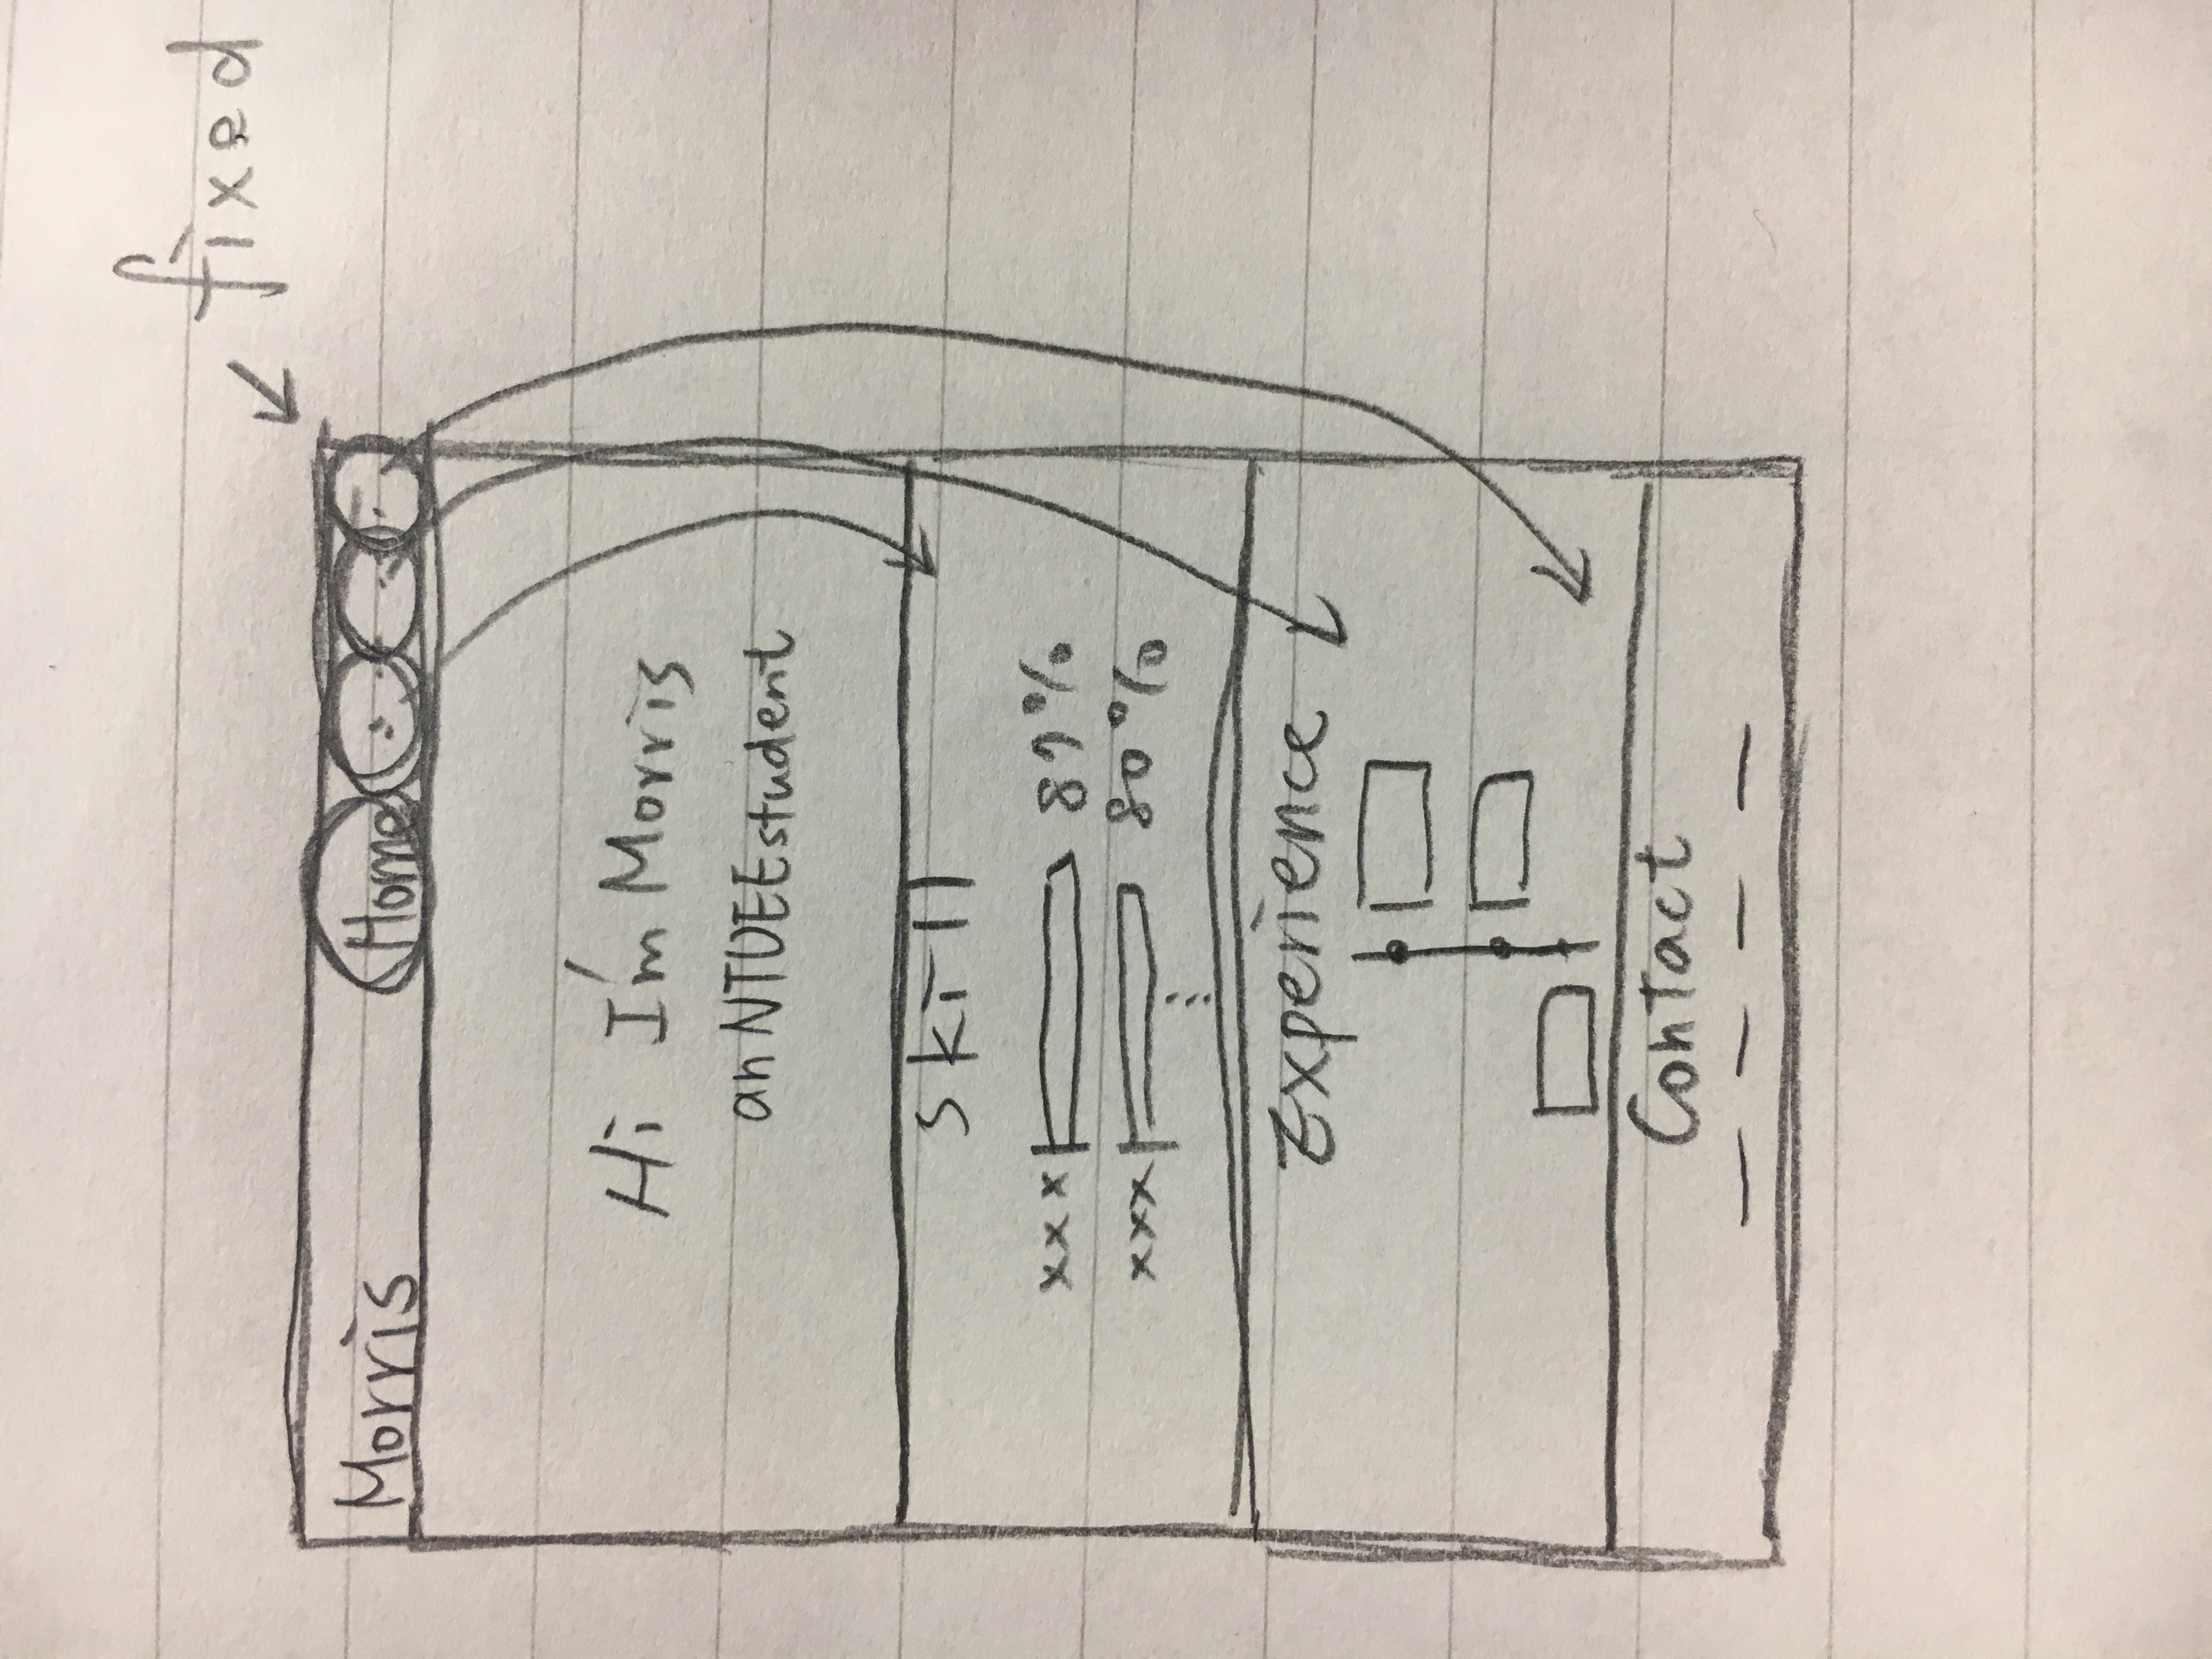 fixed
Morris Home
Hi I'm Morris
an NTUEE student
Skill
xxx 89%
xxx 80%
Experience
Contact